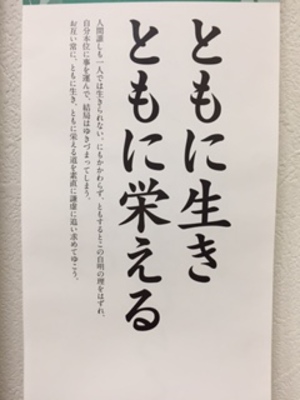 ともに生き
ともに栄える
人間誰しも一人では生きられない。にもかかわらず、ともするとこの自明の理をはずれ、
自分本位に事を運んで、結局はゆきづまってしまう。
お互い常に、ともに生き、ともに栄える道を素直に謙虚に追い求めてゆこう。